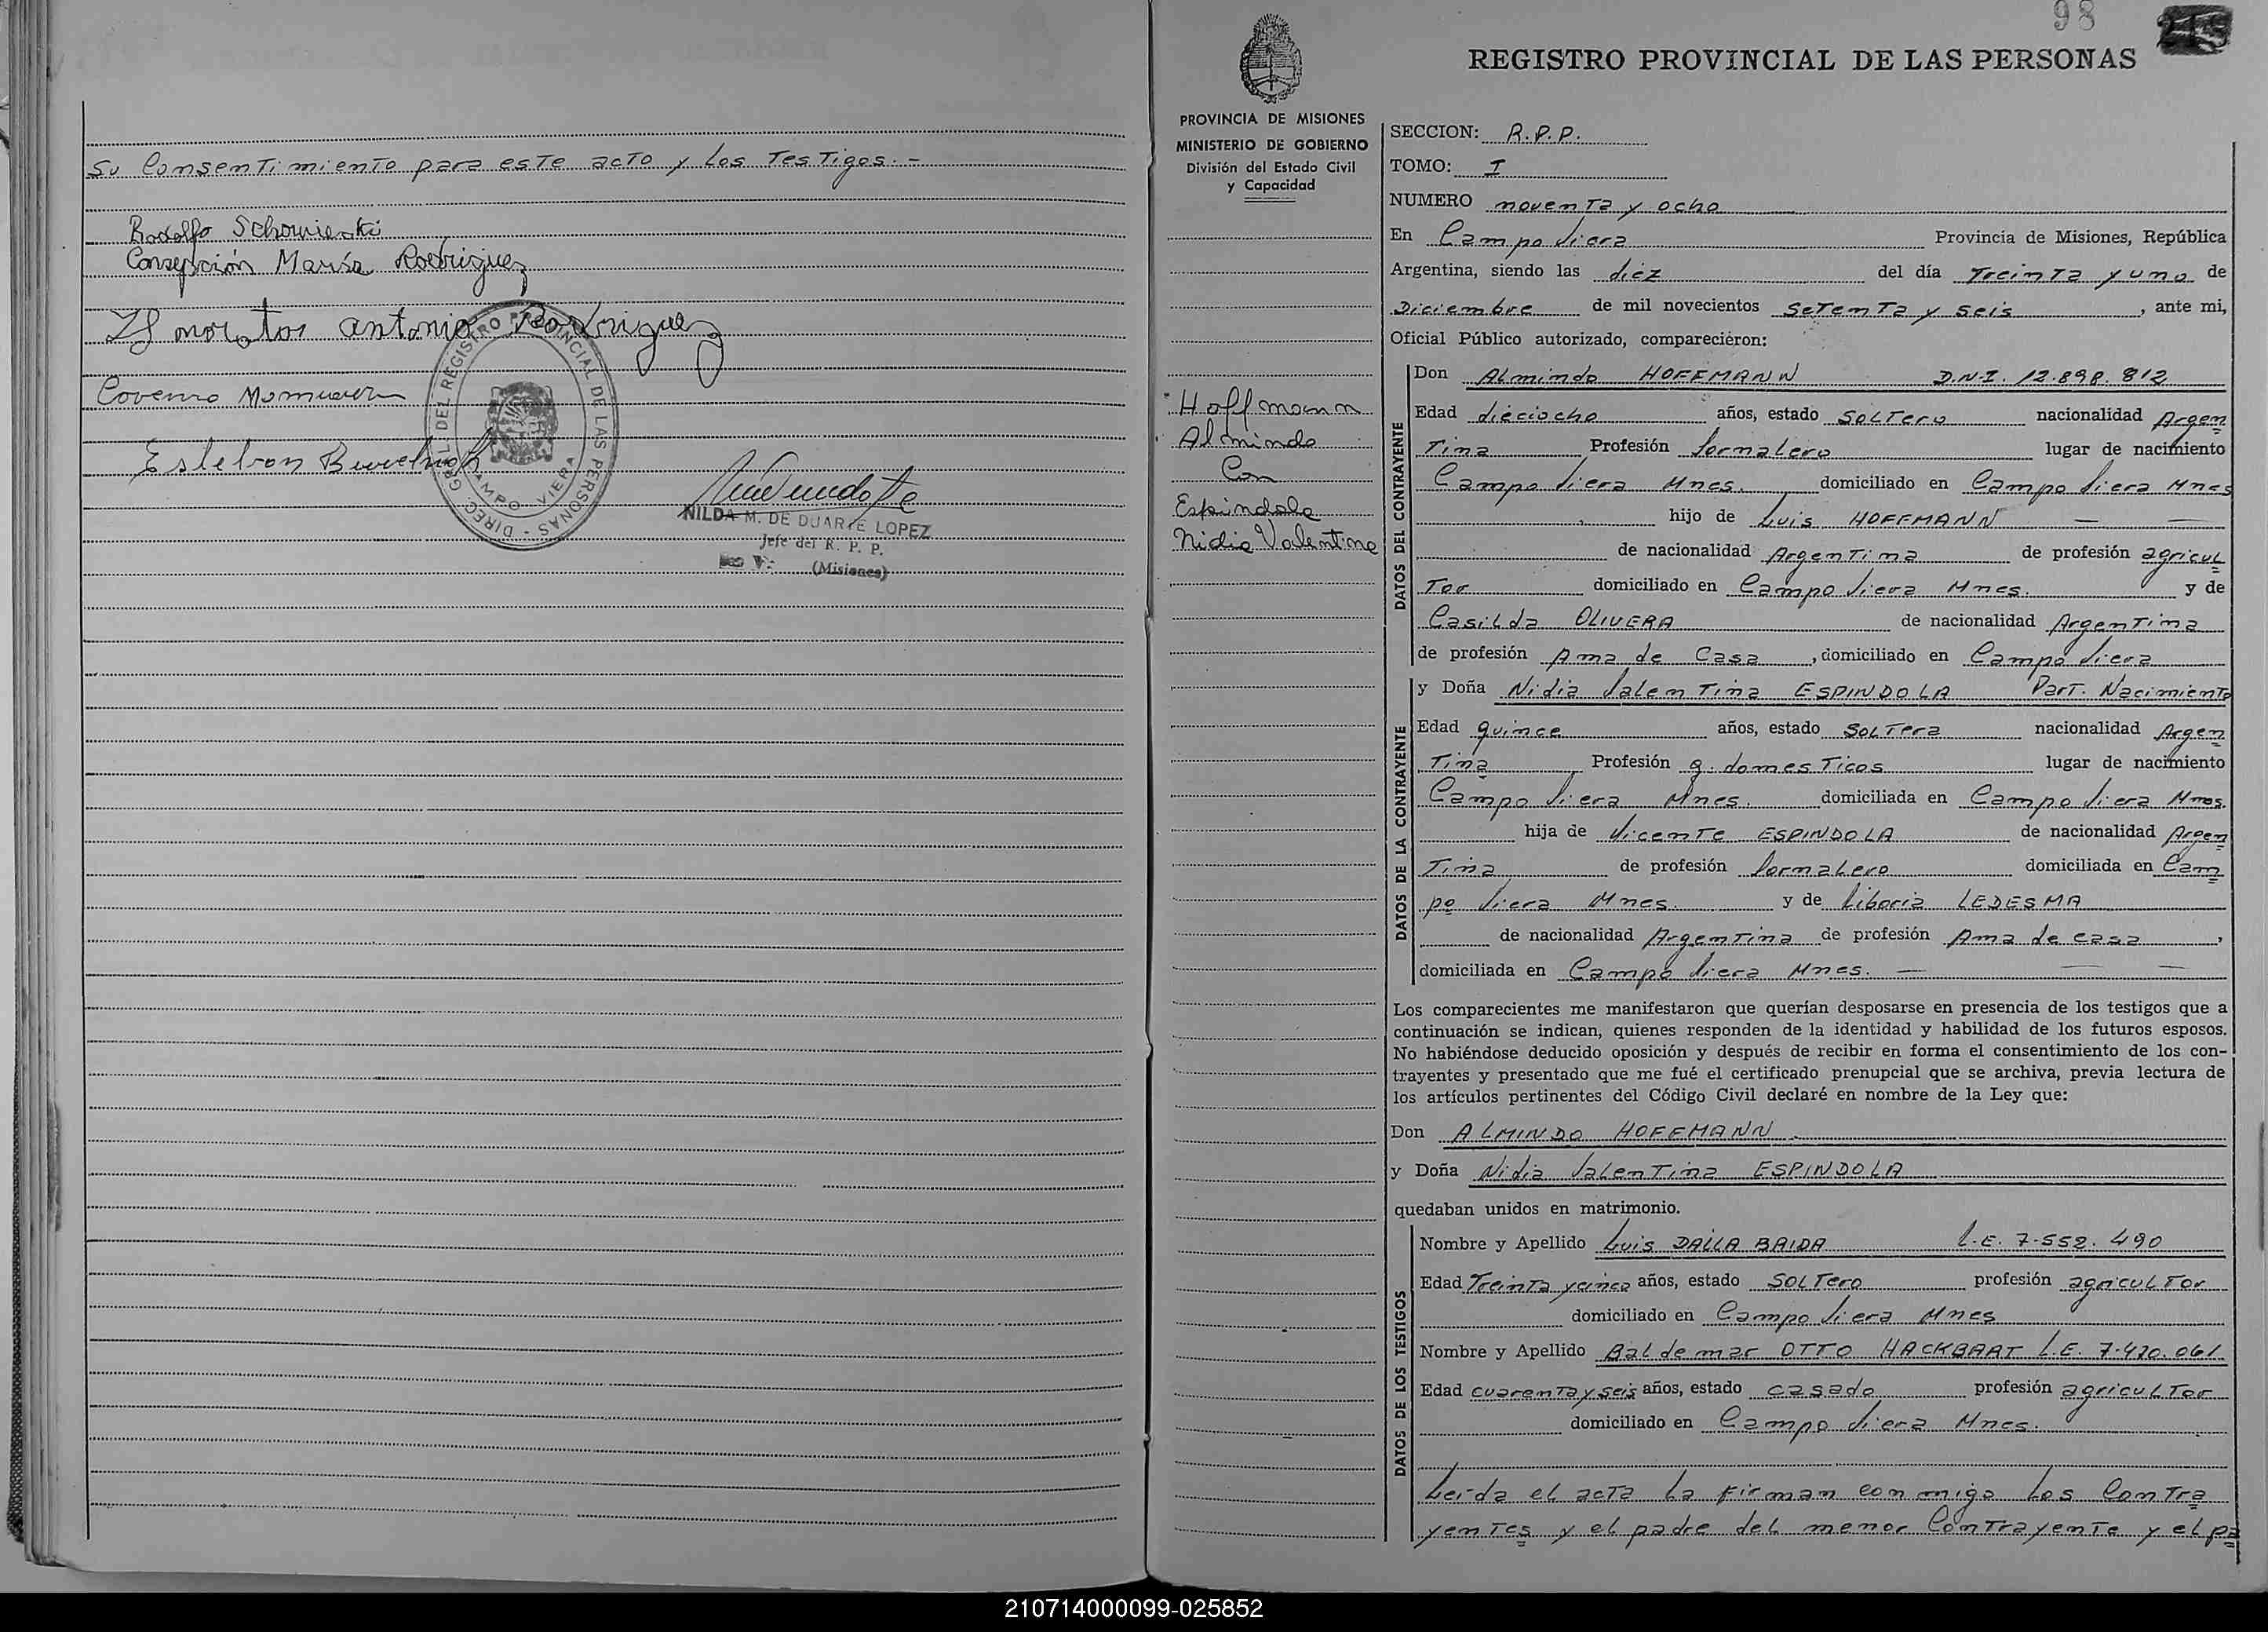 Su Consentimiento para este acto y los Testigos. -
Rodolfo Schowienski
Consepción María Rodriguez
antonio Rodriguez
Esteban
DIREC. GRAL. DEL REGISTRO PROVINCIAL DE LAS PERSONAS -
CAMPO VIERA
NILDA M. DE DUARTE LOPEZ
Jefe del R. P. P.
(Misiones)
98
REGISTRO PROVINCIAL DE LAS PERSONAS
PROVINCIA DE MISIONES
MINISTERIO DE GOBIERNO
División del Estado Civil
y Capacidad
Hoffmann
Almindo
Con
Espindola
Nidia Valentina
SECCION: R.P.P.
TOMO: I
NUMERO noventa y ocho
En Campo Viera Provincia de Misiones, República
Argentina, siendo las diez del día Treinta y uno de
Diciembre de mil novecientos Setenta y seis, ante mi,
Oficial Público autorizado, compareciéron:
DATOS DEL CONTRAYENTE
Don Almindo HOFFMANN D.N.I. 12.898.812
Edad dieciocho años, estado Soltero nacionalidad Argen
Tina Profesión Jornalero lugar de nacimiento
Campo Viera Mnes. domiciliado en Campo Viera Mnes
hijo de Luis HOFFMANN — —
de nacionalidad Argentina de profesión agricul
Tor domiciliado en Campo Viera Mnes. y de
Casilda OLIVERA de nacionalidad Argentina
de profesión Ama de Casa, domiciliado en Campo Viera
DATOS DE LA CONTRAYENTE
y Doña Nidia Valentina ESPINDOLA Part. Nacimiento
Edad quince años, estado Soltera nacionalidad Argen
Tina Profesión q. domesticos lugar de nacimiento
Campo Viera Mnes. domiciliada en Campo Viera Mnes.
hija de Vicente ESPINDOLA de nacionalidad Argen
Tina de profesión Jornalero domiciliada en Cam
po Viera Mnes. y de Liboria LEDESMA
de nacionalidad Argentina de profesión Ama de casa,
domiciliada en Campo Viera Mnes. — — —
Los comparecientes me manifestaron que querían desposarse en presencia de los testigos que a
continuación se indican, quienes responden de la identidad y habilidad de los futuros esposos.
No habiéndose deducido oposición y después de recibir en forma el consentimiento de los con-
trayentes y presentado que me fué el certificado prenupcial que se archiva, previa lectura de
los artículos pertinentes del Código Civil declaré en nombre de la Ley que:
Don ALMINDO HOFFMANN
y Doña Nidia Valentina ESPINDOLA
quedaban unidos en matrimonio.
DATOS DE LOS TESTIGOS
Nombre y Apellido Luis DALLA BAIDA L.E. 7.552.490
Edad Treinta y cinco años, estado Soltero profesión agricultor
domiciliado en Campo Viera Mnes
Nombre y Apellido Baldemar OTTO HACKBART L.E. 7.420.061.
Edad cuarenta y seis años, estado casado profesión agricultor
domiciliado en Campo Viera Mnes.
Leída el acta la firman conmigo los Contra
yentes y el padre del menor Contrayente y el pa
210714000099-025852